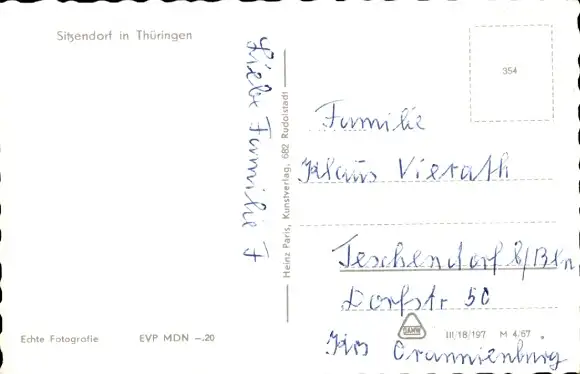 Sitzendorf in Thüringen
Liebe Familie F
Heinz Paris, Kunstverlag, 682 Rudolstadt
354
Familie
Klaus Vierath
Teschendorf b/Bln,
Dorfstr 50
Krs Orannienburg
Echte Fotografie
EVP MDN –.20
III/18/197
M 4/67